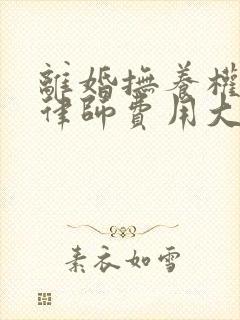 離婚撫養權
律師費用大
素衣如雪